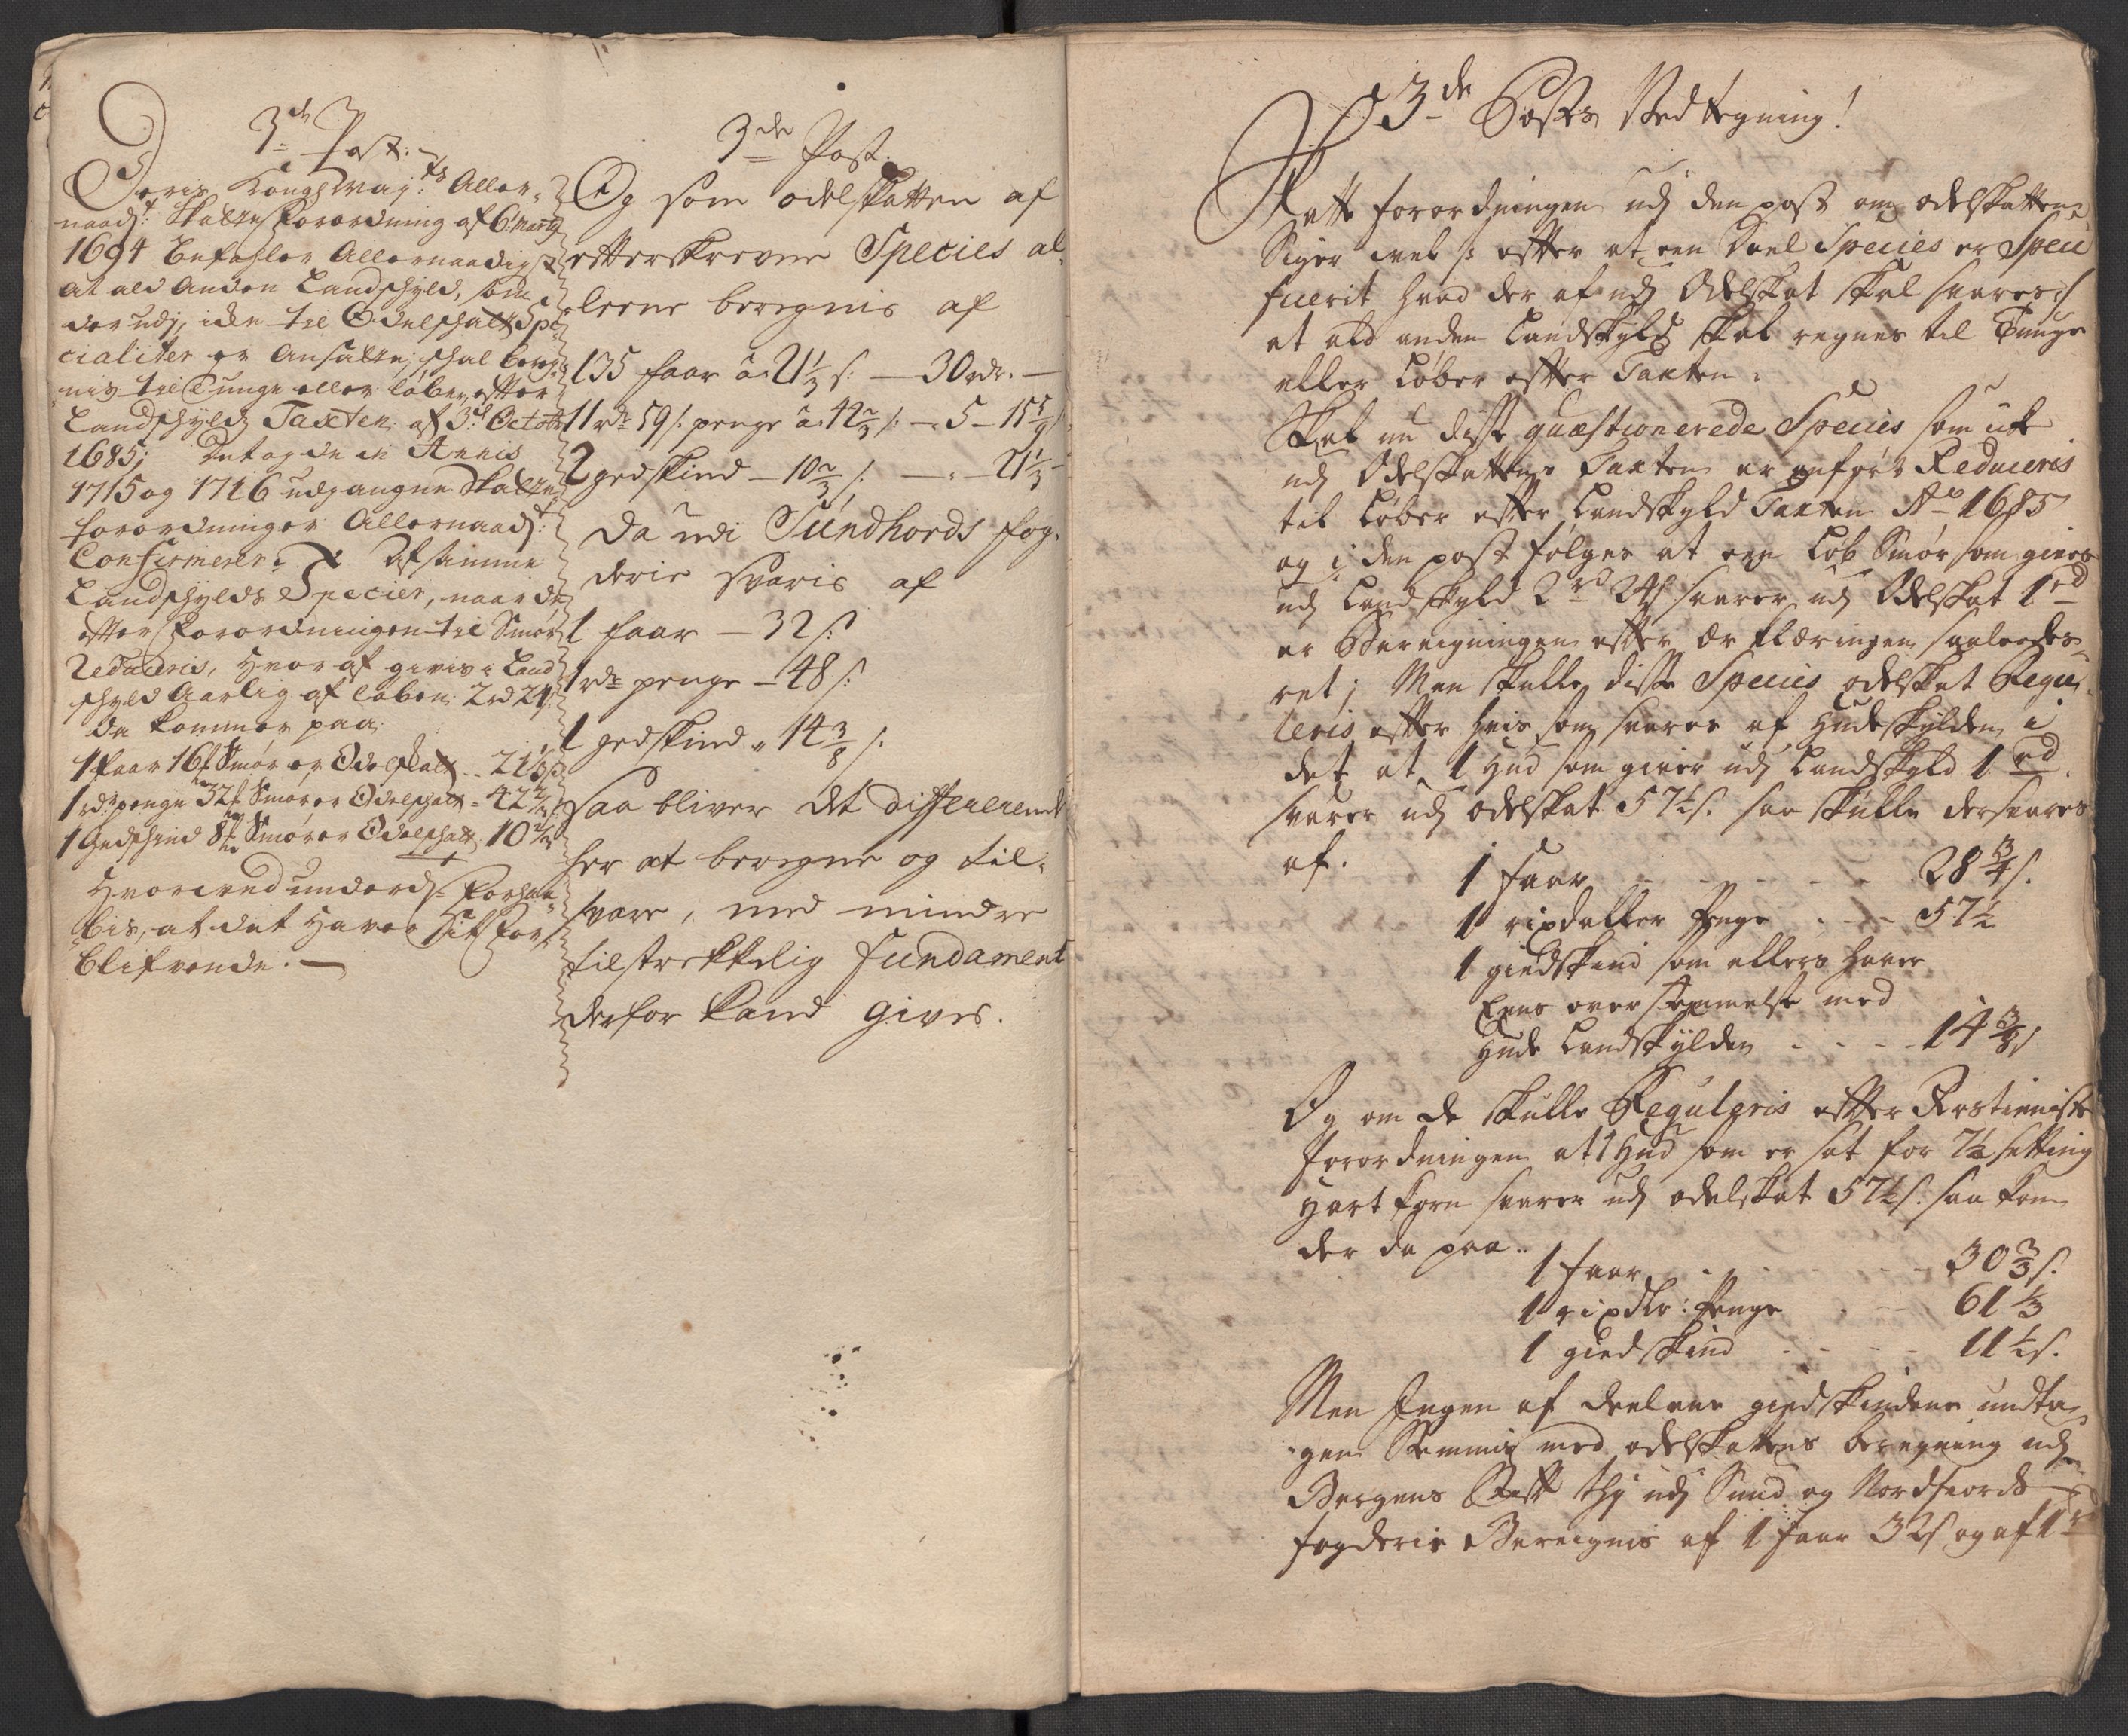 3de Post.
Deris Kongl. Maj:ts Aller-
naad:t Skatte Forordning af 6. Marty
1694 Befahler Allernaadigst
at ald Anden Landschyld, som
der udj, icke til Odelschatt Spe
cialiter er Ansatte, schal bereg-
nis til Tunge eller løber, efter
Landschyld Taxten af 3d Octobr
1685; Det og de in Annis
1715 og 1716 udgangne Skatte
forordninger Allernaad:t
Confirmerer. Af samme
Landschylds Specier, naar de
efter Forordningen til Smør
Reduceris, hvor af givis i Land
schyld Aarlig af løben 2rd 24s
da kommer paa
1 Faar 16 Smør er Odelschatt - 21 1/3 s
1 rdr penge 32 Smør, er Odelschatt - 42 2/3 s
1 Gedschind 8 Smør er Odelschatt 10 2/3 s
Hvorved underd: Forhaa-
bis, at det Haver sit For-
blifvende.
3de Post.
Og som odelskatten af
efterskrevne Species al-
leene beregnis af
135 faar à 21 1/3 s: — 30 rdr. —
11 rdr 59 s. penge à 42 2/3 s: — 5 — 15 5/9
2 gedskind — 10 2/3 s: — " — 21 1/3
da udi Sundhords fog-
derie svaris af
1 faar — 32 s:
1 rdr penge — 48 s:
1 gedskind " 14 3/8 s:
saa bliver det differerende
her at beregne og til-
svare, med mindre
tilstrekkelig fundament
derfor kand gives.
3de Posts Ved tegning!
Rette forordningen udj den post om odelskatten
Siger vel /: efter at een Deel Species er Speci
ficerit hvad der af udj Odelskat skal svares :/
at ald anden Landskyld skal regnes til Tunge
eller Løber efter Taxten.
Skal nu disse quæstionerede Species som icke
udj Odelskattens Taxten er anført Reduceris
til Løber efter Landskyld Taxten Ao 1685
og i den post følges at een Løb Smør som gives
udj Landskyld 2rd 24s svarer udj Odelskat 1rd
er Beregningen efter er klæringen saaledes
ret; Men skulle disse Species odelskat Regu-
leris efter hvis som svares af Hudeskylden i
det at 1 Hud som giver udj Landskyld 1 rd.
svarer udj odelskat 57½ s. saa skulle der svares
af.
1 faar - - - - - - 28 3/4 s.
1 rixdaller Penge - - - 57½
1 giedskind som ellers haver
Eens over stemmelse med
Hude Landskylden - - - - 14 3/8 s
Og om de skulle Reguleris efter
Forordningen at 1 Hud som er sat for 7½ setting
Hart korn svarer udj odelskat 57½ s. saa kom
der da paa..
1 faar - - - - - - 30 2/3 s.
1 rixdlr: Penge - - - 61 1/3
1 giedskind - - - - 11½ s.
Men Ingen af deelene giedskindene undta-
-gen stemmis med odelskattens beregning udj
Bergens Stift thj udj Sund og Nordfiords
fogderie Beregnis af 1 faar 32s og af 1 rd